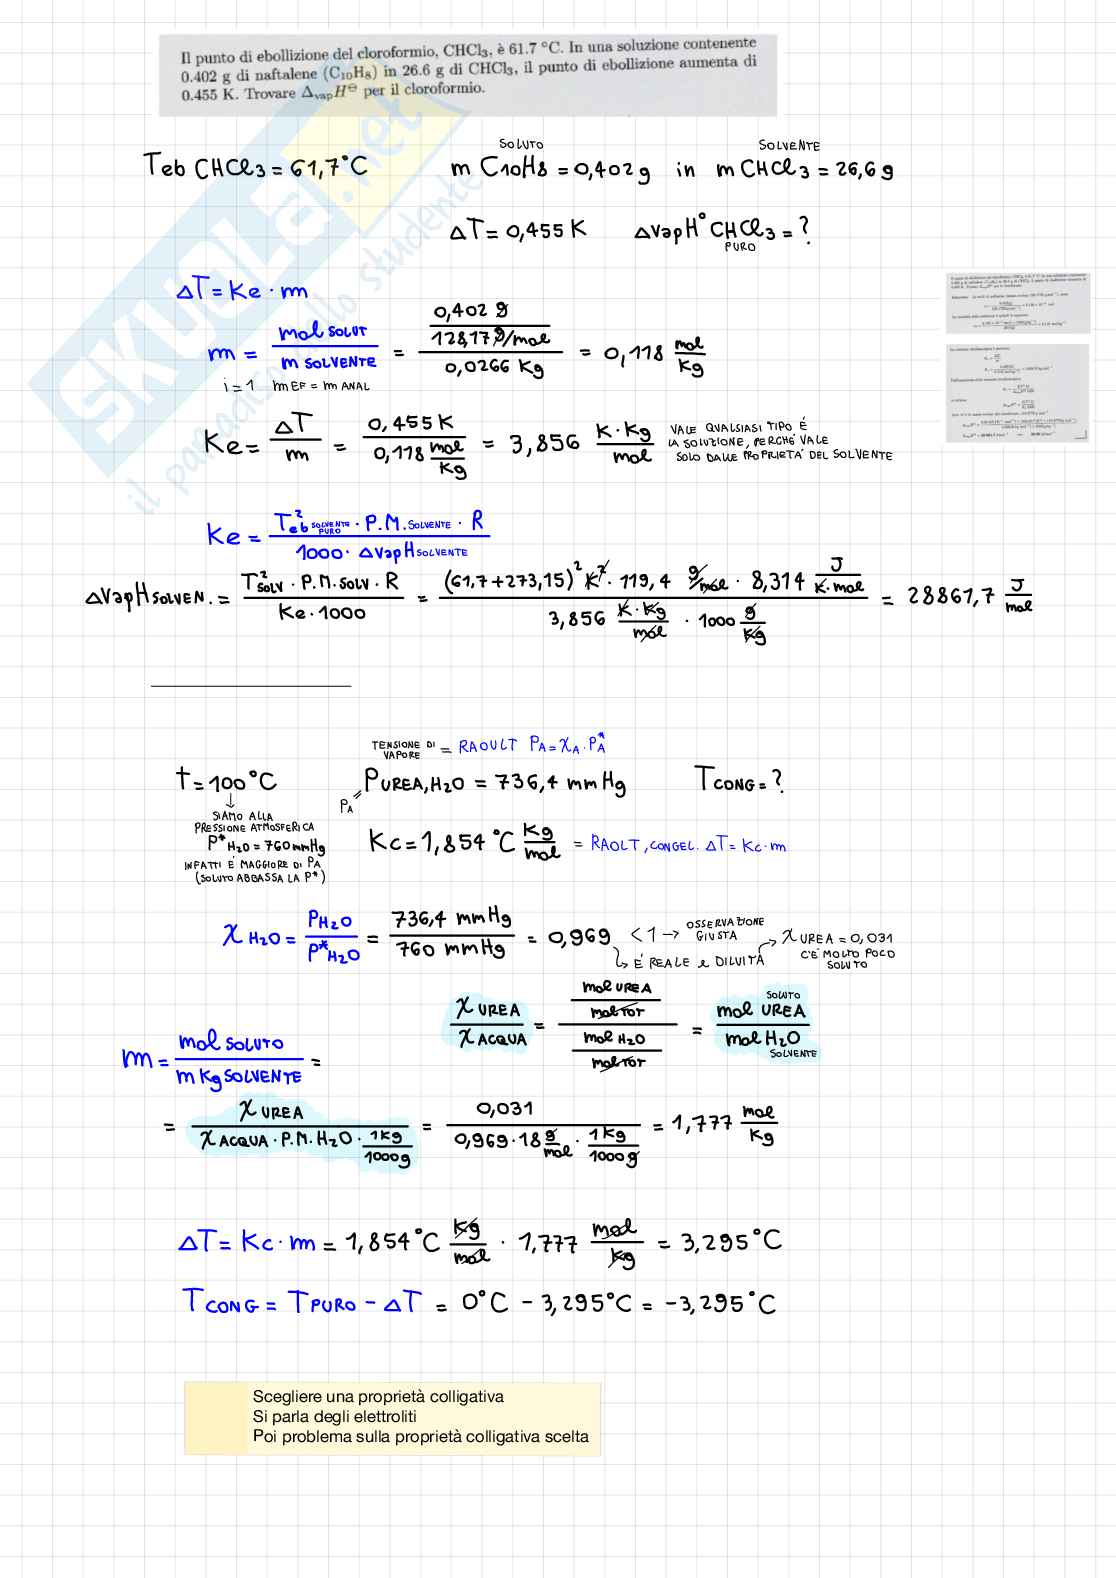 Il punto di ebollizione del cloroformio, CHCl₃, è 61.7 °C. In una soluzione contenente
0.402 g di naftalene (C₁₀H₈) in 26.6 g di CHCl₃, il punto di ebollizione aumenta di
0.455 K. Trovare ΔvapH⊖ per il cloroformio.
SKUOLA.net
il paradiso dello studente
SOLUTO SOLVENTE
Teb CHCl₃ = 61,7°C m C₁₀H₈ = 0,402 g in m CHCl₃ = 26,6 g
ΔT = 0,455 K ΔvapH° CHCl₃ = ?
PURO
ΔT = Ke · m
m = mol SOLUT / m SOLVENTE = (0,402 g / 128,17 g/mol) / 0,0266 Kg = 0,118 mol/Kg
i = 1 m EF = m ANAL
Ke = ΔT / m = 0,455 K / 0,118 mol/Kg = 3,856 K·Kg/mol
VALE QUALSIASI TIPO È
LA SOLUZIONE, PERCHÉ VALE
SOLO DALLE PROPRIETÀ DEL SOLVENTE
Ke = T²eb SOLVENTE PURO · P.M. SOLVENTE · R / 1000 · ΔvapH SOLVENTE
ΔvapH SOLVEN. = T²SOLV · P.M. SOLV · R / Ke · 1000 = (61,7+273,15)² K² · 119,4 g/mol · 8,314 J/K·mol / 3,856 K·Kg/mol · 1000 g/Kg = 28861,7 J/mol
TENSIONE DI VAPORE = RAOULT PA = χA · PA*
t = 100°C PUREA, H₂O = 736,4 mmHg TCONG = ?
PA
SIAMO ALLA
PRESSIONE ATMOSFERICA
P* H₂O = 760 mmHg
INFATTI È MAGGIORE DI PA
(SOLUTO ABBASSA LA P*)
Kc = 1,854 °C Kg/mol = RAOLT, CONGEL. ΔT = Kc · m
χ H₂O = PH₂O / P*H₂O = 736,4 mmHg / 760 mmHg = 0,969 < 1 → OSSERVAZIONE GIUSTA
↳ È REALE e DILUITA → χ UREA = 0,031
C'È MOLTO POCO
SOLUTO
χ UREA / χ ACQUA = (mol UREA / mol TOT) / (mol H₂O / mol TOT) = mol UREA / mol H₂O
SOLUTO
SOLVENTE
m = mol SOLUTO / m Kg SOLVENTE =
= χ UREA / χ ACQUA · P.M. H₂O · 1Kg/1000g = 0,031 / 0,969 · 18 g/mol · 1Kg/1000g = 1,777 mol/Kg
ΔT = Kc · m = 1,854 °C Kg/mol · 1,777 mol/Kg = 3,295 °C
TCONG = TPURO - ΔT = 0°C - 3,295°C = -3,295°C
Scegliere una proprietà colligativa
Si parla degli elettroliti
Poi problema sulla proprietà colligativa scelta